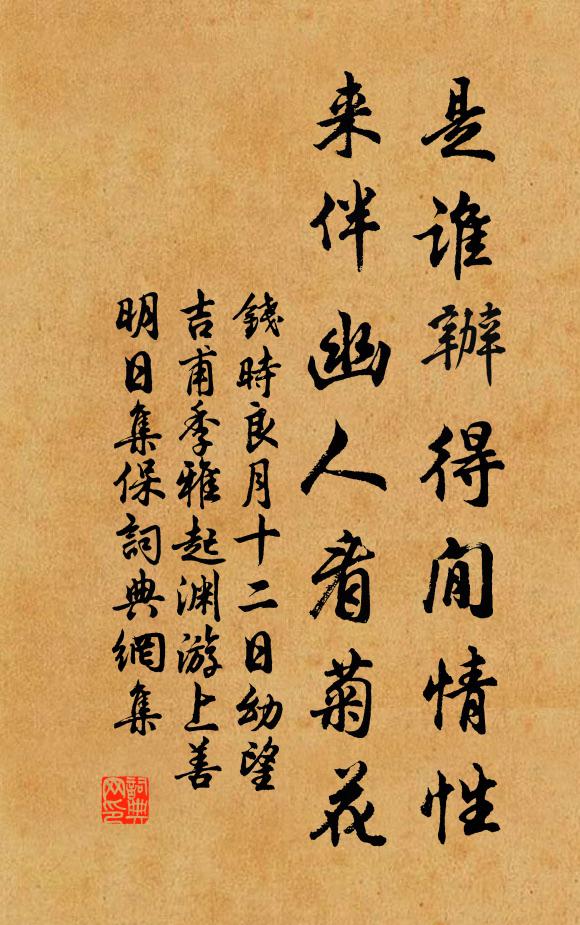 是誰辦得閒情性
来伴幽人看菊花
錢時良月十二日幼望
吉甫季雅起渊游上善
明日集保詞典網集
詞典网印